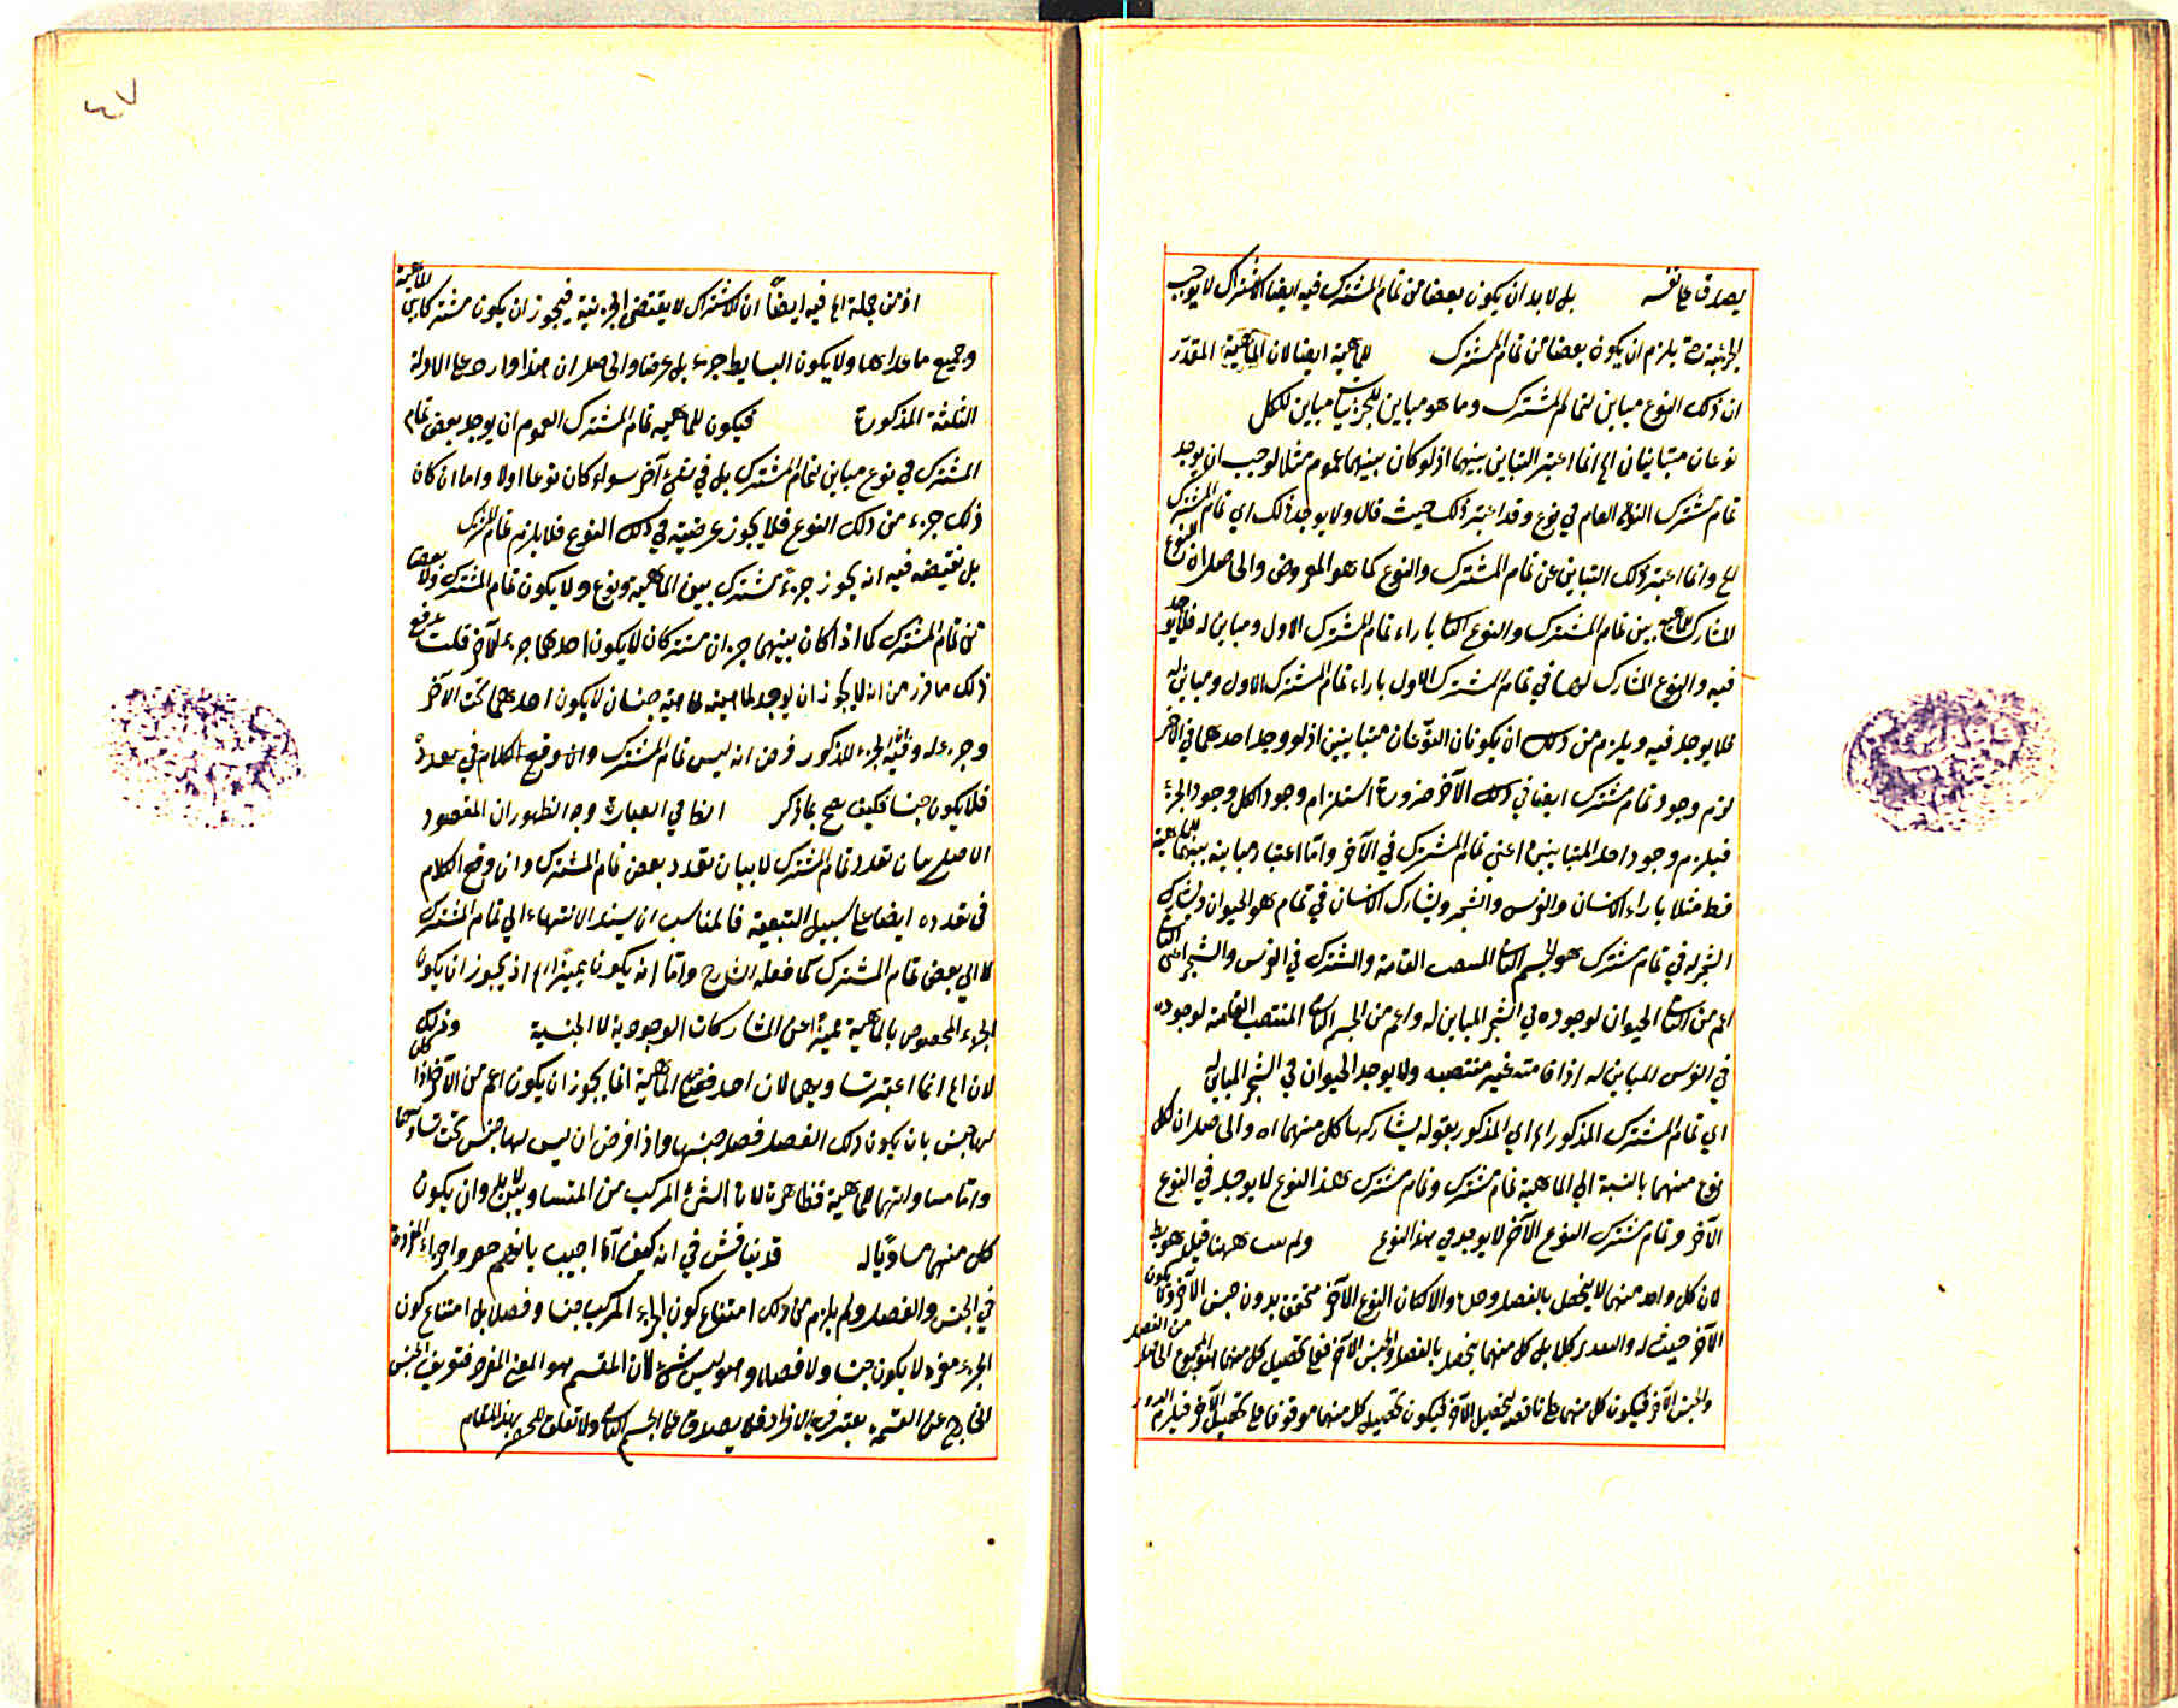 يصدق على نفسه بل لا بد ان يكون بعضا من تمام المشترك فيه ايضا الاشتراك لا يوجب
الجزئية يلزم ان يكون بعضا من تمام المشترك للماهية ايضا لان الماهية المقدر
ان ذلك النوع مباين لتمام المشترك وما هو مباين للجزء مباين للكل
نوعان متباينان الخ انما اعتبر التباين بينهما اذ لو كان بينهما عموم مثلا لوجب ان يوجد
تمام مشترك النوع العام في نوع وقد اعتبر ذلك حيث قال ولا يوجد ذلك اي تمام المشترك
الخ وانما اعتبر ذلك التباين عن تمام المشترك والنوع كما هو المفروض والحاصل ان النوع
المشارك للماهية بين تمام المشترك والنوع الثاني بازاء تمام المشترك الاول ومباين له فلا يوجد
فيه والنوع المشارك لها في تمام المشترك الاول بازاء تمام المشترك الاول ومباين له
فلا يوجد فيه ويلزم من ذلك ان يكونان النوعان متباينين اذ لو وجد احدهما في الاخر
لزم وجود تمام مشترك ايضا في ذلك الآخر ضرورة استلزام وجود الكل وجود الجزء
فيلزم وجود احد المتباينين اعني تمام المشترك في الآخر واما اعتبار مباينة بينهما للماهية
فقط مثلا بازاء الانسان والفرس والشجر ويشارك الانسان في تمام هو الحيوان ويشارك
الشجر له في تمام مشترك هو الجسم النامي المنتصب القامة والمشترك في الفرس والشجر اعني النامي
اعم من الحيوان لوجوده في الشجر المباين له واعم من الجسم النامي المنتصب القامة لوجوده
في الفرس المباين له اذ قامته غير منتصبه ولا يوجد الحيوان في الشجر المباين له
اي تمام المشترك المذكور الخ اي المذكور بقوله يشاركها كل منهما اه والحاصل ان كل
نوع منهما بالنسبة الي الماهية تمام مشترك وتمام مشترك هذا النوع لا يوجد في النوع
الآخر وتمام مشترك النوع الآخر لا يوجد في هذا النوع ولم ههنا قيل هو
لان كل واحد منهما لا يتحصل بالفصل وحده والا لكان النوع الآخر متحقق بدون جنس الآخر
الآخر حيث له كل بل كل منهما يتحصل بالفصل والجنس الآخر فعلى تحصيل كل منهما المجموع الحاصل من الفصل
والجنس الآخر فيكون كل منهما علة ناقصة لتحصيل الآخر فيكون تحصيل كل منهما موقوفا على تحصيل الآخر فيلزم الدور
٤٧
اذ من جملة الخ فيه ايضاً ان الاشتراك لا يقتضى الجزئية فيجوز ان يكون مشتركا بين الماهية
وجميع ما عداها ولا يكون البسايط جزء بل عرضا والحاصل ان هذا وارد على الاولة
الثلثة المذكورة فيكون للماهية تمام المشترك العموم ان يوجد بعض تمام
المشترك في نوع مباين لتمام المشترك بل في شيء آخر سواء كان نوعا اولا واما ان كان
ذلك جزء من ذلك النوع فلا يجوز عرضيته في ذلك النوع فلا يلزم تمام المشترك
بل نقيضه فيه انه يجوز جزء مشترك بين الماهية ونوع ولا يكون تمام المشترك ولا بعضا
من تمام المشترك كما اذا كان بينهما جزءان مشتركان لا يكون احدهما جزء للآخر قلت يدفع
ذلك ما قرر من انه لا يجوز ان يوجد لماهية جنسان لا يكون احدهما تحت الآخر
وجزء له وفيه الجزء المذكور فرض انه ليس تمام المشترك وان وقع الكلام في تعدده
فلا يكون جنسا فكيف يصح بما ذكر الخ في العبارة وجه الظهور ان المقصود
الاصلي بيان تعدد تمام المشترك لا بيان تعدد بعض تمام المشترك وان وقع الكلام
في تعدده ايضا على سبيل التبعية فالمناسب ان يسند الانتهاء الي تمام المشترك
لا الي بعض تمام المشترك كما فعله الشارح واما انه يكون مميزا الخ اذ يجوز ان يكون
الجزء المخصوص بالماهية مميزا عن المشاركات الوجودية لا الجنسية وذلك
لان الخ انما اعتبر تساويهما لان احد فصلي الماهية انما يجوز ان يكون اعم من الآخر اذا كان
لها جنس بان يكون ذلك الفصل فصل جنسها واذا فرض ان ليس لها جنس تحت تساويهما
واما مساواتهما للماهية فظاهرة لان الشيء المركب من المتساويين لا بد وان يكون
كل منهما مساويا له قد يناقش في انه كيف اما اجيب بانهم حصروا اجزاء المفردة
في الجنس والفصل ولم يلزم من ذلك امتناع كون اجزاء المركب جنسا وفصلا بل امتناع كون
الجزء مفرد لا يكون جنسا ولا فصلا وهو ليس شيء لان المقسم هو المعنى المفرد فتعريف الجنس
الخارج عن القسمة يعتبر في الافراد فلا يصدق على الجسم النامي ولا تعلق للحصر بهذا المقام